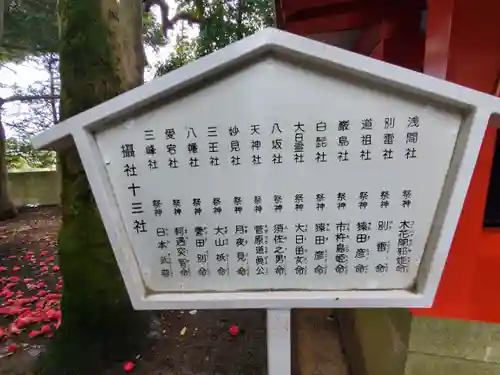 浅間社 祭神 木花開耶姫命
別雷社 祭神 別雷命
道祖社 祭神 猿田彦命
巌島社 祭神 市杵島姫命
白髭社 祭神 猿田彦命
大日霊社 祭神 大日霊命
八坂社 祭神 須佐之男命
天神社 祭神 菅原道真公
妙見社 祭神 月夜見命
三王社 祭神 大山祇命
八幡社 祭神 誉田別命
愛宕社 祭神 軻遇突智命
三峰社 祭神 日本武尊
攝社十三社